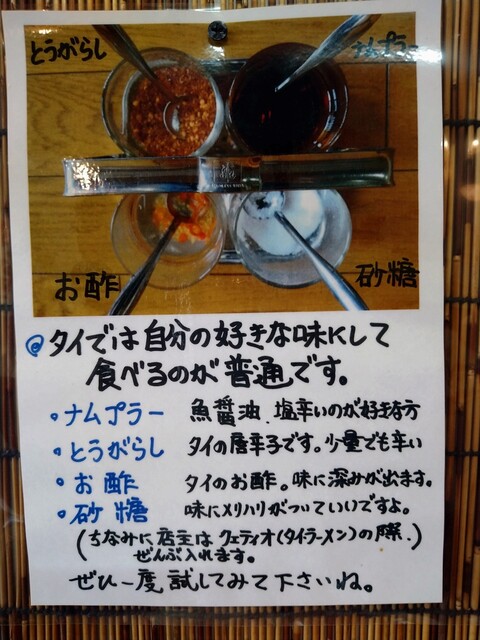 とうがらし
ナムプラー
お酢
砂糖
@タイでは自分の好きな味にして
食べるのが普通です。
・ナムプラー 魚醤油、塩辛いのが好きな方
・とうがらし タイの唐辛子です。少量でも辛い
・お酢 タイのお酢。味に深みが出ます。
・砂糖 味にメリハリがついていいですよ。
(ちなみに店主はクェティオ(タイラーメン)の際、
ぜんぶ入れます。)
ぜひ一度試してみて下さいね。